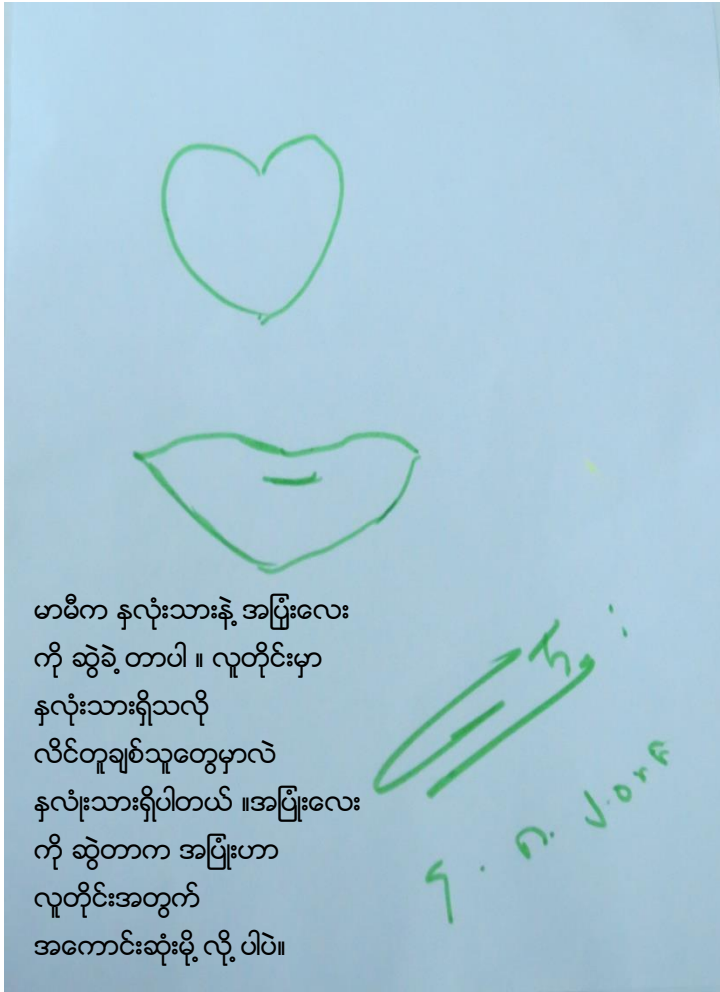 မာမီက နှလုံးသားနဲ့ အပြုံးလေး
ကို ဆွဲခဲ့ တာပါ ။ လူတိုင်းမှာ
နှလုံးသားရှိသလို
လိင်တူချစ်သူတွေမှာလဲ
နှလုံးသားရှိပါတယ် ။အပြုံးလေး
ကို ဆွဲတာက အပြုံးဟာ
လူတိုင်းအတွက်
အကောင်းဆုံးမို့ လို့ ပါပဲ။